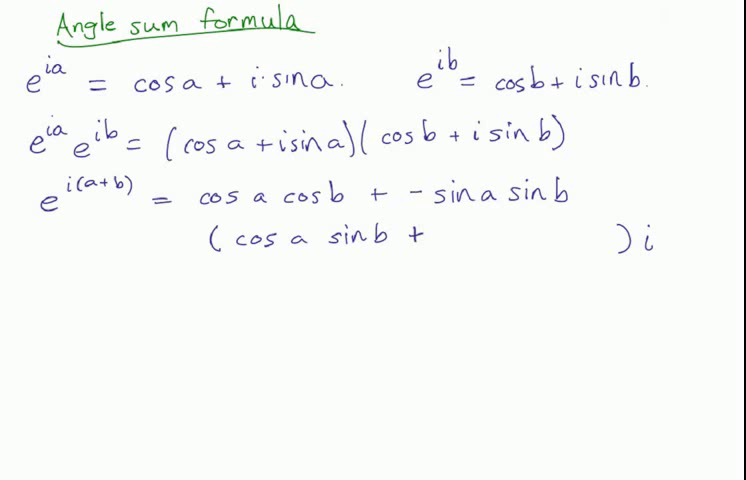 Angle sum formula
e^{ia} = cos a + i·sin a. e^{ib} = cos b + i sin b.
e^{ia} e^{ib} = (cos a + i sin a)(cos b + i sin b)
e^{i(a+b)} = cos a cos b + - sin a sin b
( cos a sin b + ) i